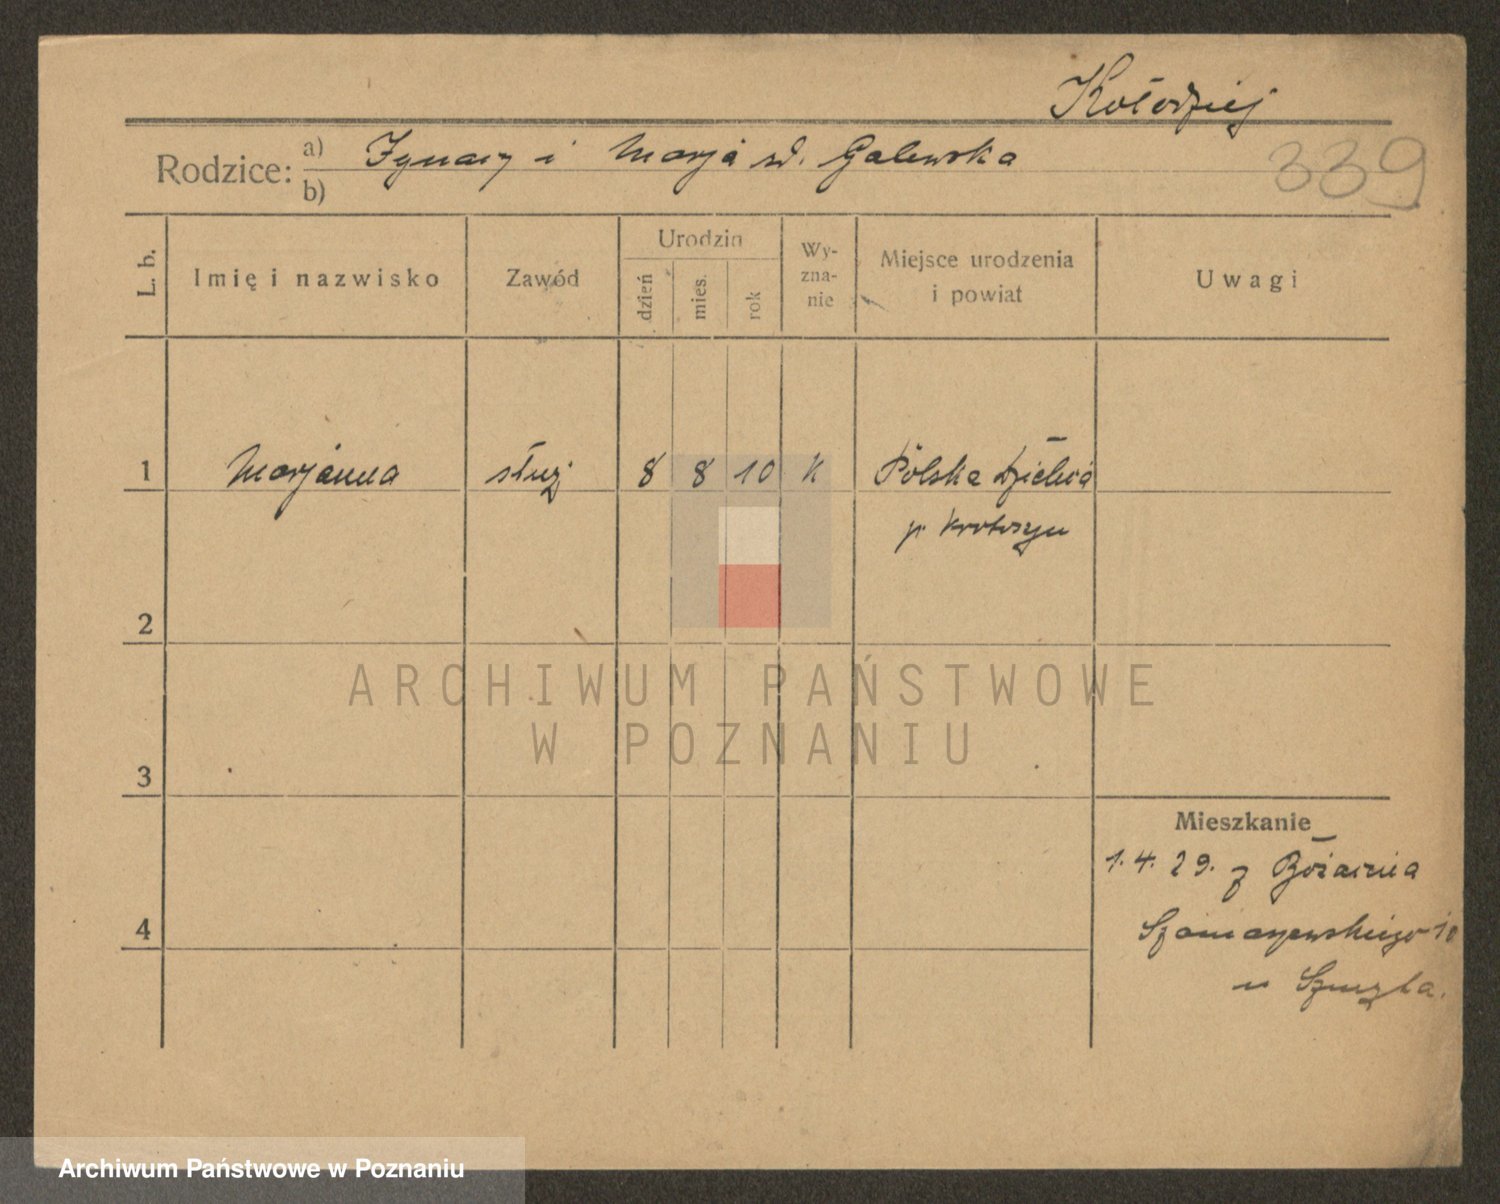 Kołodziej
339
Rodzice: a) Ignacy i Marja sd. Galewska
b)
L. b. Imię i nazwisko Zawód Urodzin dzień mies. rok Wyznanie Miejsce urodzenia i powiat Uwagi
1 Marjanna służ 8 8 10 K Polska
p. Krotoszyn
2
3
4
Mieszkanie
1.4.29. z Bożacina
Szamarzewskiego
u
ARCHIWUM PAŃSTWOWE
W POZNANIU
Archiwum Państwowe w Poznaniu